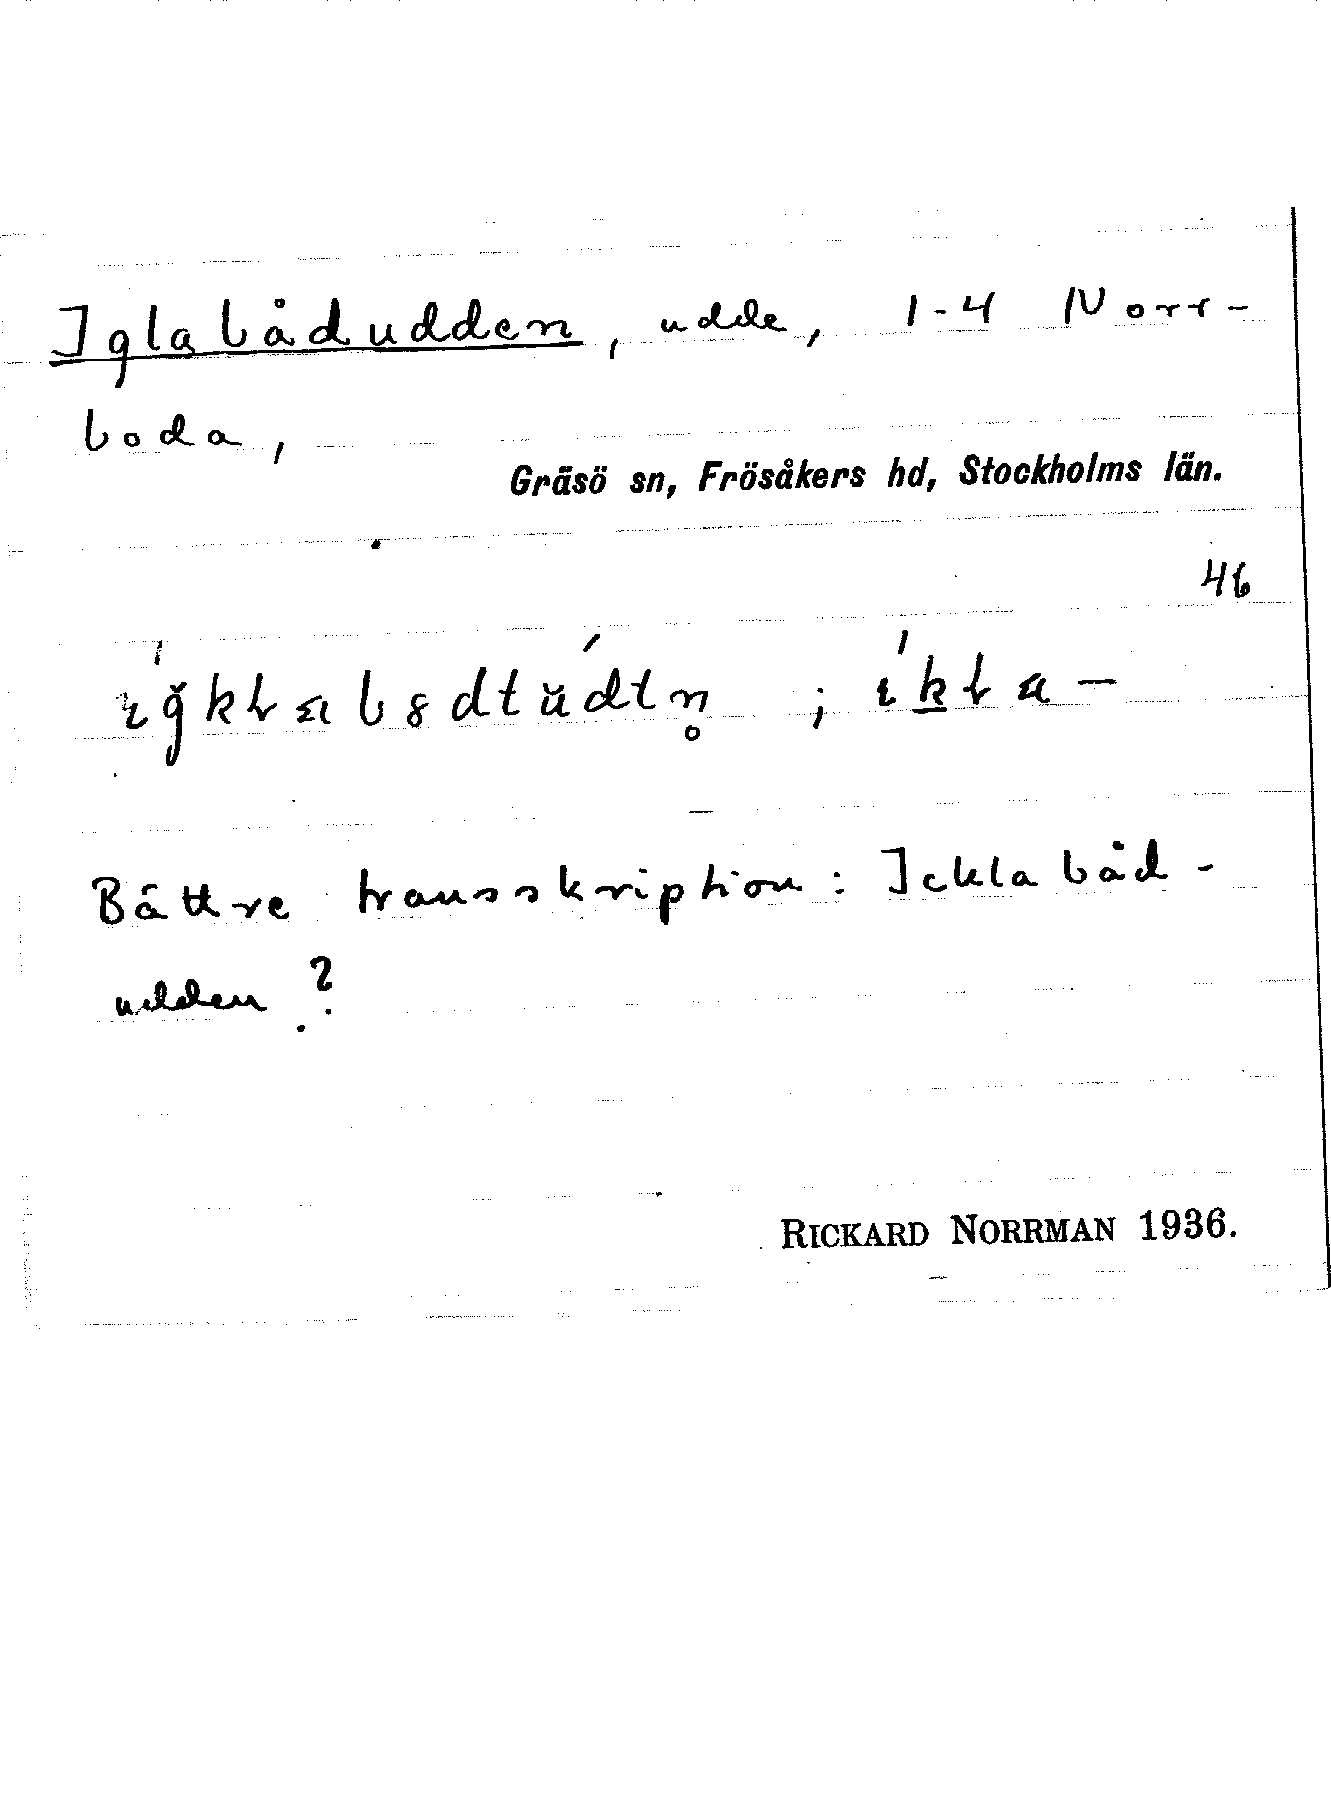 Iglabådudden, udde, 1-4 Norr-
boda,
Gräsö sn, Frösåkers hd, Stockholms län.
46
Bättre transskription: Icklabåd-
udden?
RICKARD NORRMAN 1936.